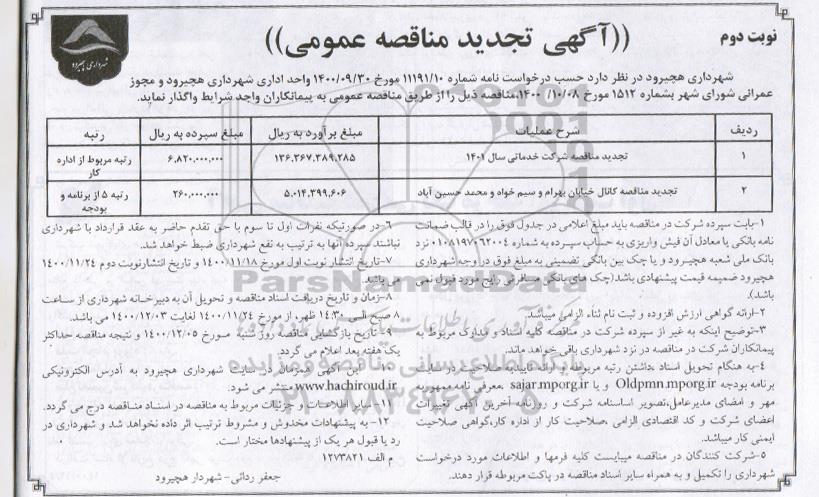 نوبت دوم
((آگهی تجدید مناقصه عمومی))
شهرداری هچیرود
شهرداری هچیرود در نظر دارد حسب درخواست نامه شماره ۱۱۱۹۱/۱۰ مورخ ۱۴۰۰/۰۹/۳۰ واحد اداری شهرداری هچیرود و مجوز
عمرانی شورای شهر بشماره ۱۵۱۲ مورخ ۱۴۰۰/۱۰/۰۸،مناقصه ذیل را از طریق مناقصه عمومی به پیمانکاران واجد شرایط واگذار نماید.
ردیف شرح عملیات مبلغ برآورد به ریال مبلغ سپرده به ریال رتبه
۱ تجدید مناقصه شرکت خدماتی سال ۱۴۰۱ ۱۳۶.۳۶۷.۳۸۹.۲۸۵ ۶.۸۲۰.۰۰۰.۰۰۰ رتبه مربوط از اداره
کار
۲ تجدید مناقصه کانال خیابان بهرام و سیم خواه و محمد حسین آباد ۵.۰۱۴.۳۹۹.۶۰۶ ۲۶۰.۰۰۰.۰۰۰ رتبه ۵ از برنامه و
بودجه
۱-بابت سپرده شرکت در مناقصه باید مبلغ اعلامی در جدول فوق را در قالب ضمانت
نامه بانکی یا معادل آن فیش واریزی به حساب سپرده به شماره ۰۱۰۸۱۹۷۰۶۲۰۰۴ نزد
بانک ملی شعبه هچیرود و یا چک بین بانکی تضمینی به مبلغ فوق در وجه شهرداری
هچیرود ضمیمه قیمت پیشنهادی باشد(چک های بانکی مسافرتی رایج مورد قبول نمی
باشد).
۲-ارائه گواهی ارزش افزوده و ثبت نام ثناء الزامی میباشد.
۳-توضیح اینکه به غیر از سپرده شرکت در مناقصه کلیه اسناد و مدارک مربوط به
پیمانکاران شرکت در مناقصه در نزد شهرداری باقی خواهد ماند.
۴-به هنگام تحویل اسناد ،داشتن رتبه مربوطه و ارائه تاییدیه صلاحیت در سایت
برنامه بودجه Oldpmn.mporg.ir و یا sajar.mporg.ir ،معرفی نامه ممهوربه
مهر و امضای مدیرعامل،تصویر اساسنامه شرکت و روزنامه آخرین آگهی تغییرات
اعضای شرکت و کد اقتصادی الزامی ،صلاحیت کار از اداره کار،گواهی صلاحیت
ایمنی کار میباشد.
۵-شرکت کنندگان در مناقصه میبایست کلیه فرمها و اطلاعات مورد درخواست
شهرداری را تکمیل و به همراه سایر اسناد مناقصه در پاکت مربوطه قرار دهند.
۶-در صورتیکه نفرات اول تا سوم با حق تقدم حاضر به عقد قرارداد با شهرداری
نباشند سپرده آنها به ترتیب به نفع شهرداری ضبط خواهد شد.
۷-تاریخ انتشار نوبت اول مورخ ۱۴۰۰/۱۱/۱۸ و تاریخ انتشارنوبت دوم ۱۴۰۰/۱۱/۲۴
می باشد.
۸-زمان و تاریخ دریافت اسناد مناقصه و تحویل آن به دبیرخانه شهرداری از ساعت
۸ صبح الی ۱۴.۳۰ ظهر، از مورخ ۱۴۰۰/۱۱/۲۴ لغایت ۱۴۰۰/۱۲/۰۳ می باشد.
۹- تاریخ بازگشایی مناقصه روز شنبه مورخ ۱۴۰۰/۱۲/۰۵ و نتیجه مناقصه حداکثر
یک هفته بعد اعلام می گردد.
۱۰- این آگهی همزمان در سایت شهرداری هچیرود به آدرس الکترونیکی
www.hachiroud.ir منتشر می شود.
۱۱- سایر اطلاعات و جزئیات مربوط به مناقصه در اسناد مناقصه درج می گردد.
۱۲-به پیشنهادات مخدوش و مشروط ترتیب اثر داده نخواهد شد و شهرداری در
رد یا قبول هر یک از پیشنهادها مختار است.
م الف ۱۲۷۳۸۲۱
جعفر ردائی-شهردار هچیرود
ParsNamadData
پایگاه اطلاع رسانی مناقصه و مزایده
۰۲۱-۸۸۳۴۹۶۷۰-۵